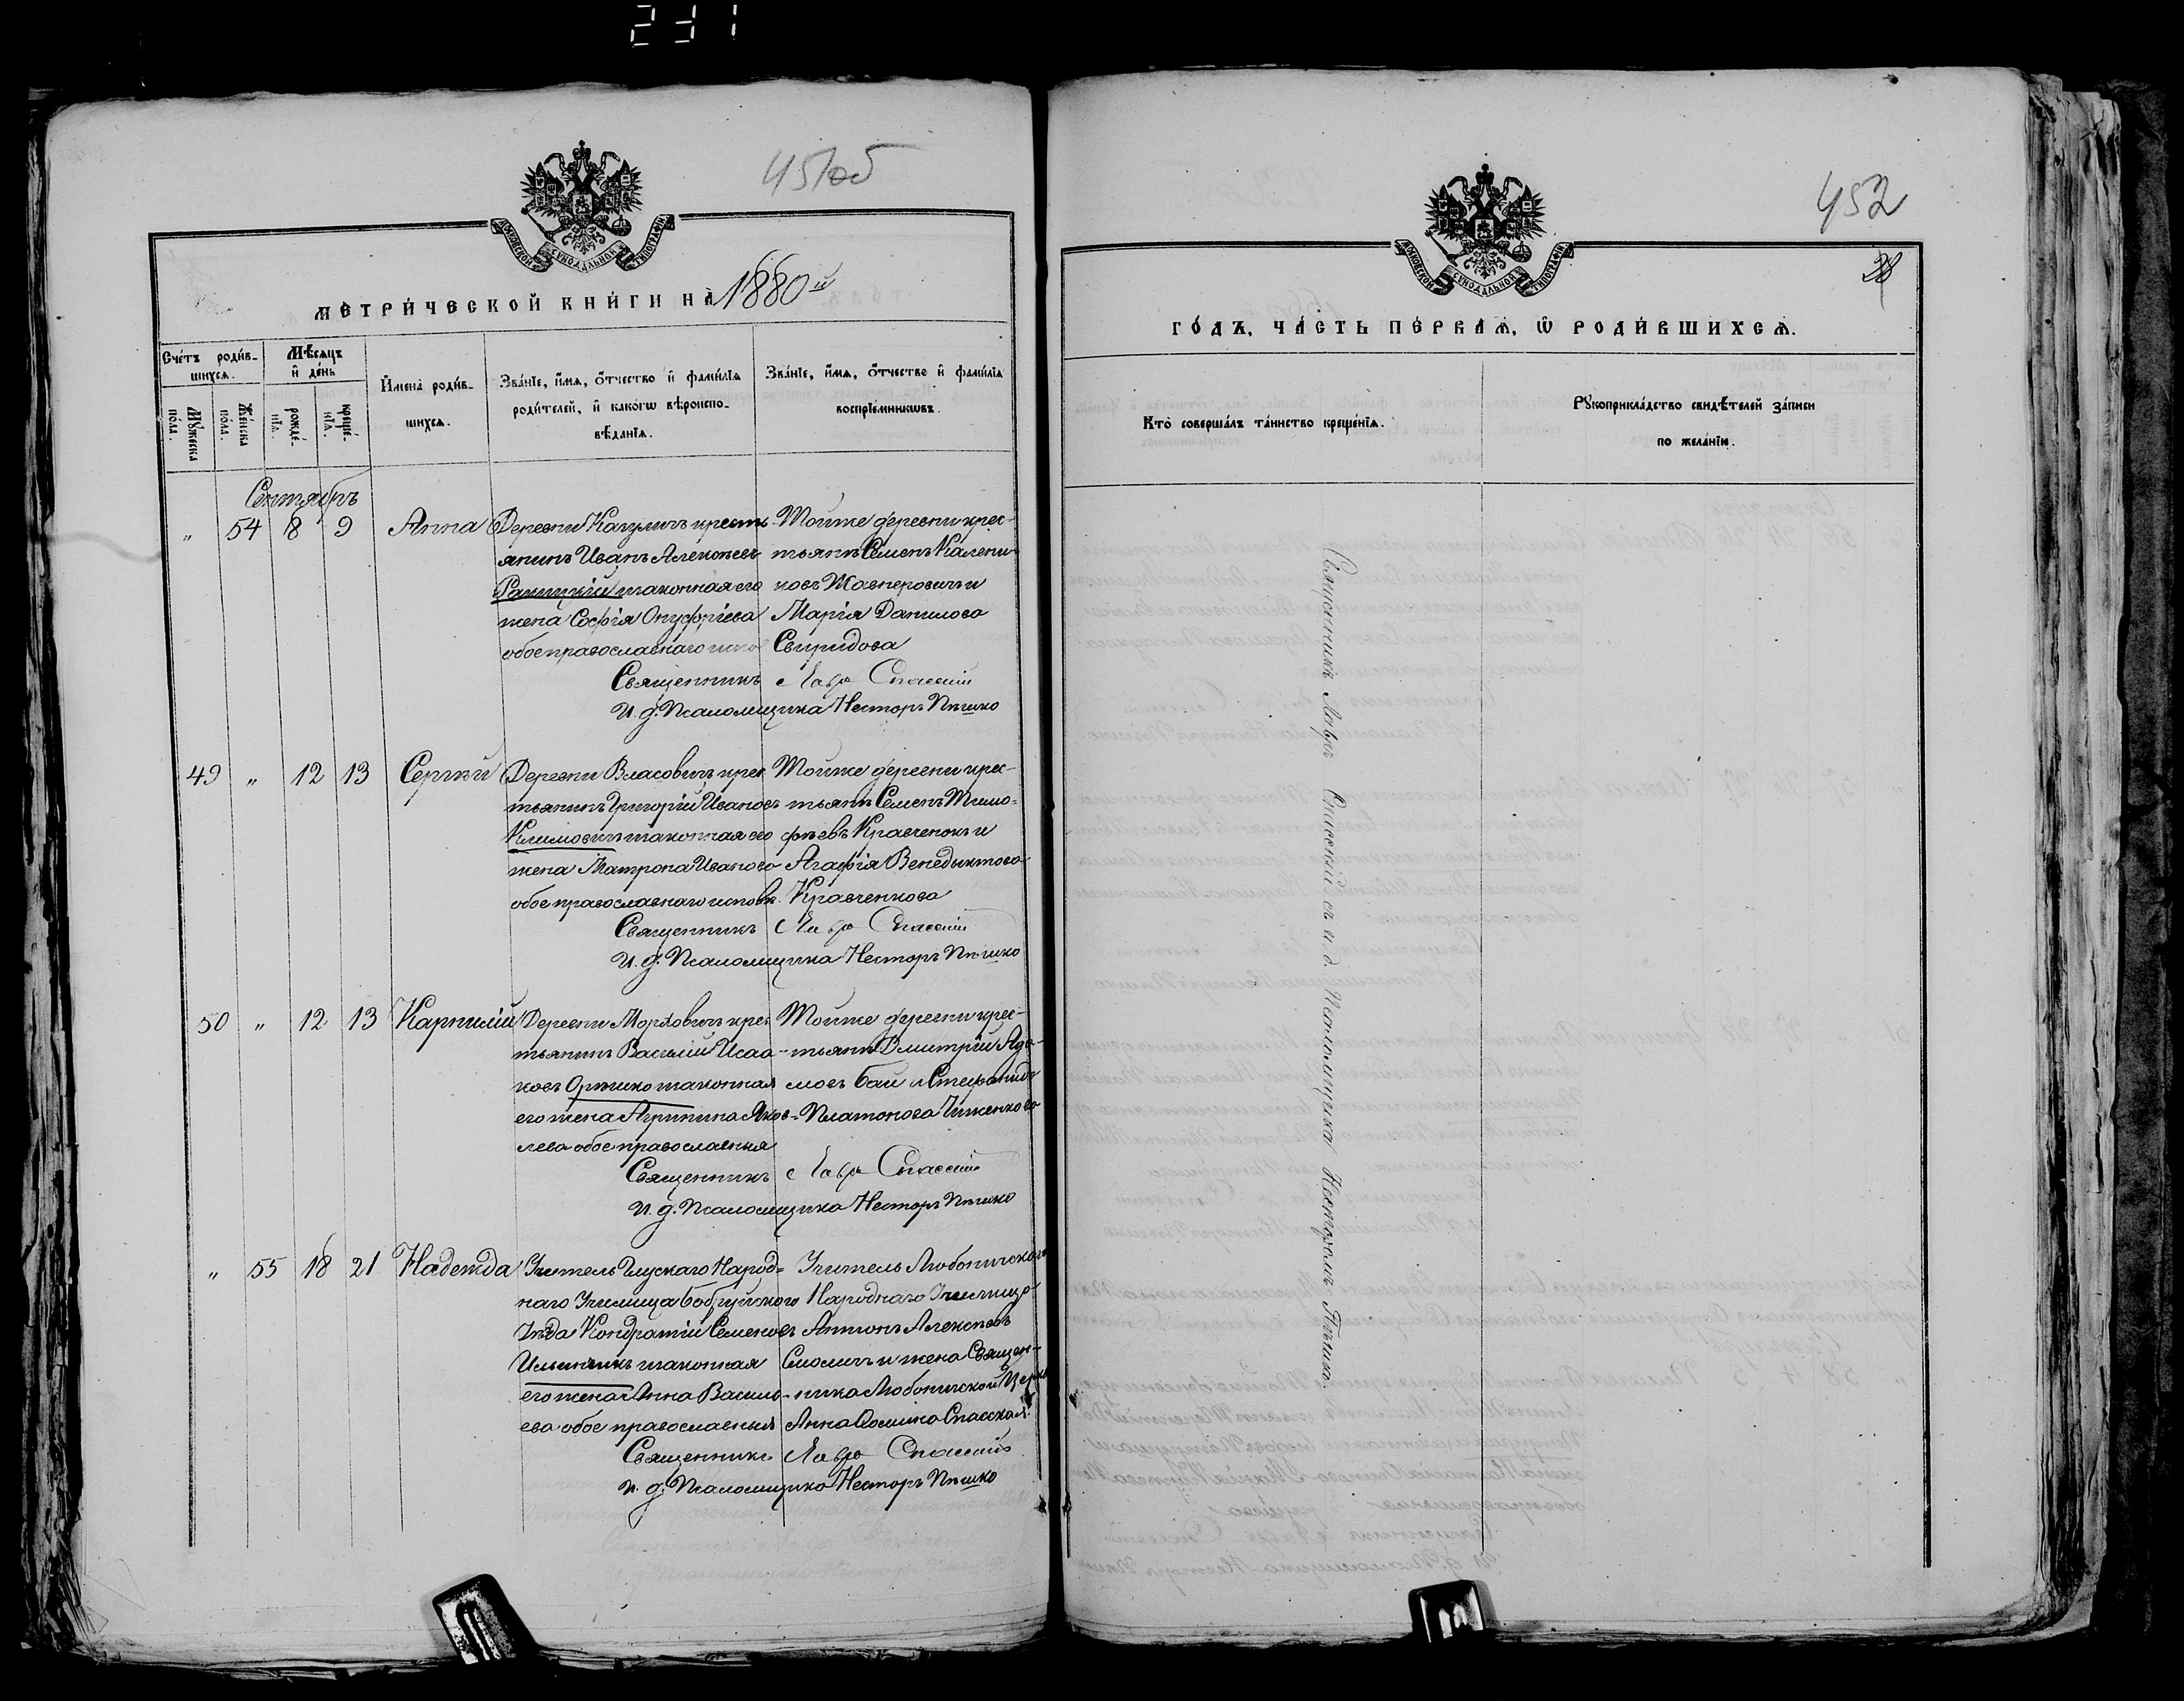 231
451об
МОСКОВСКОЙ СѴНОДАЛЬНОЙ ТИПОГРАФІИ
МЕТРИЧЕСКОЙ КНИГИ НА 1880й
Счетъ родив-
шихся.
Мѣсяцъ
и день
Мужеска
пола.
Женска
пола.
рожде-
нія.
креще-
нія.
Имена родив-
шихся.
Званіе, имя, отчество и фамилія
родителей, и какогѡ вѣроиспо-
вѣданія.
Званіе, имя, отчество и фамилія
воспріемникωвъ.
Сентябрь
„ 54 8 9 Анна
Деревни крестъ
янинъ Иванъ Алексѣевъ
законная его
жена Софія Онуфріева
обое православнаго
Тойже деревни крес-
тьян. Семенъ Калени-
ковъ и
Марія Данилова
Свиридова
Священникъ Лавръ Спасскій
И. д. Псаломщика Несторъ Пѣшко
49 „ 12 13 Сергій
Деревни Власовичъ крес
тьянинъ Григорій Ивановъ
Климовичъ законная его
жена Матрона Иванова
обое православнаго исповѣ.
Тойже деревни крес-
тьян. Семенъ Тимо-
фѣевъ Кравченокъ и
Агафія Венедыктова
Кравченкова
Священникъ Лавръ Спасскій
И. д. Псаломщика Несторъ Пѣшко
50 „ 12 13 Карпилій
Деревни крес
тьянинъ Василій Исаа-
ковъ законная
его жена Агрипина Яков-
лева обое православныя
Тойже деревни крес-
тьян. Дмитрій Ада-
мовъ Бай и Стефанида
Платонова
Священникъ Лавръ Спасскій
И. д. Псаломщика Несторъ Пѣшко
„ 55 18 21 Надежда
Учитель Глускаго Народ-
наго Училища Бобруйскаго
Уѣзда Кондратій Семеновъ
законная
его жена Анна Василь-
ева обое православныя
Учитель Любоничскаго
Народнаго Училища
Антонъ Алексѣевъ
Смоличъ и жена Священ-
ника Любоничской Церкв
Анна Спасская
Священникъ Лавръ Спасскій
И. д. Псаломщика Несторъ Пѣшко
452
МОСКОВСКОЙ СѴНОДАЛЬНОЙ ТИПОГРАФІИ
ГОДЪ, ЧАСТЬ ПЕРВАЯ, Ѡ РОДИВШИХСЯ.
Кто совершалъ таинство крещенія.
Рукоприкладство свидѣтелей записи
по желанію.
Священникъ Лавръ Спасскій съ и. д. Псаломщика Несторомъ Пѣшко.